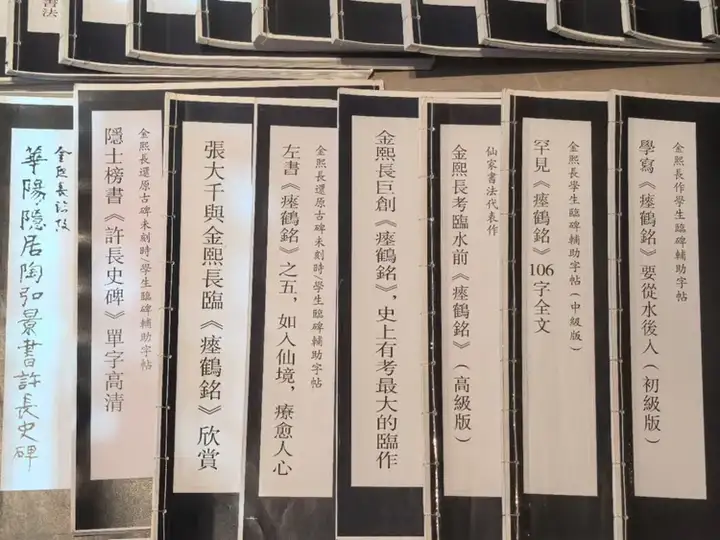 金熙長作學生臨碑輔助字帖
學寫《瘞鶴銘》要從水後入(初級版)
金熙長學生臨碑輔助字帖(中級版)
罕見《瘞鶴銘》106字全文
仙家書法代表作
金熙長考臨水前《瘞鶴銘》(高級版)
金熙長巨創《瘞鶴銘》,史上有考最大的臨作
金熙長還原古碑未刻時/學生臨碑輔助字帖
左書《瘞鶴銘》之五,如入仙境,療愈人心
張大千與金熙長臨《瘞鶴銘》欣賞
金熙長還原古碑未刻時/學生臨碑輔助字帖
隱士榜書《許長史碑》單字高清
金熙長
華陽隱居陶弘景書許長史碑
書法